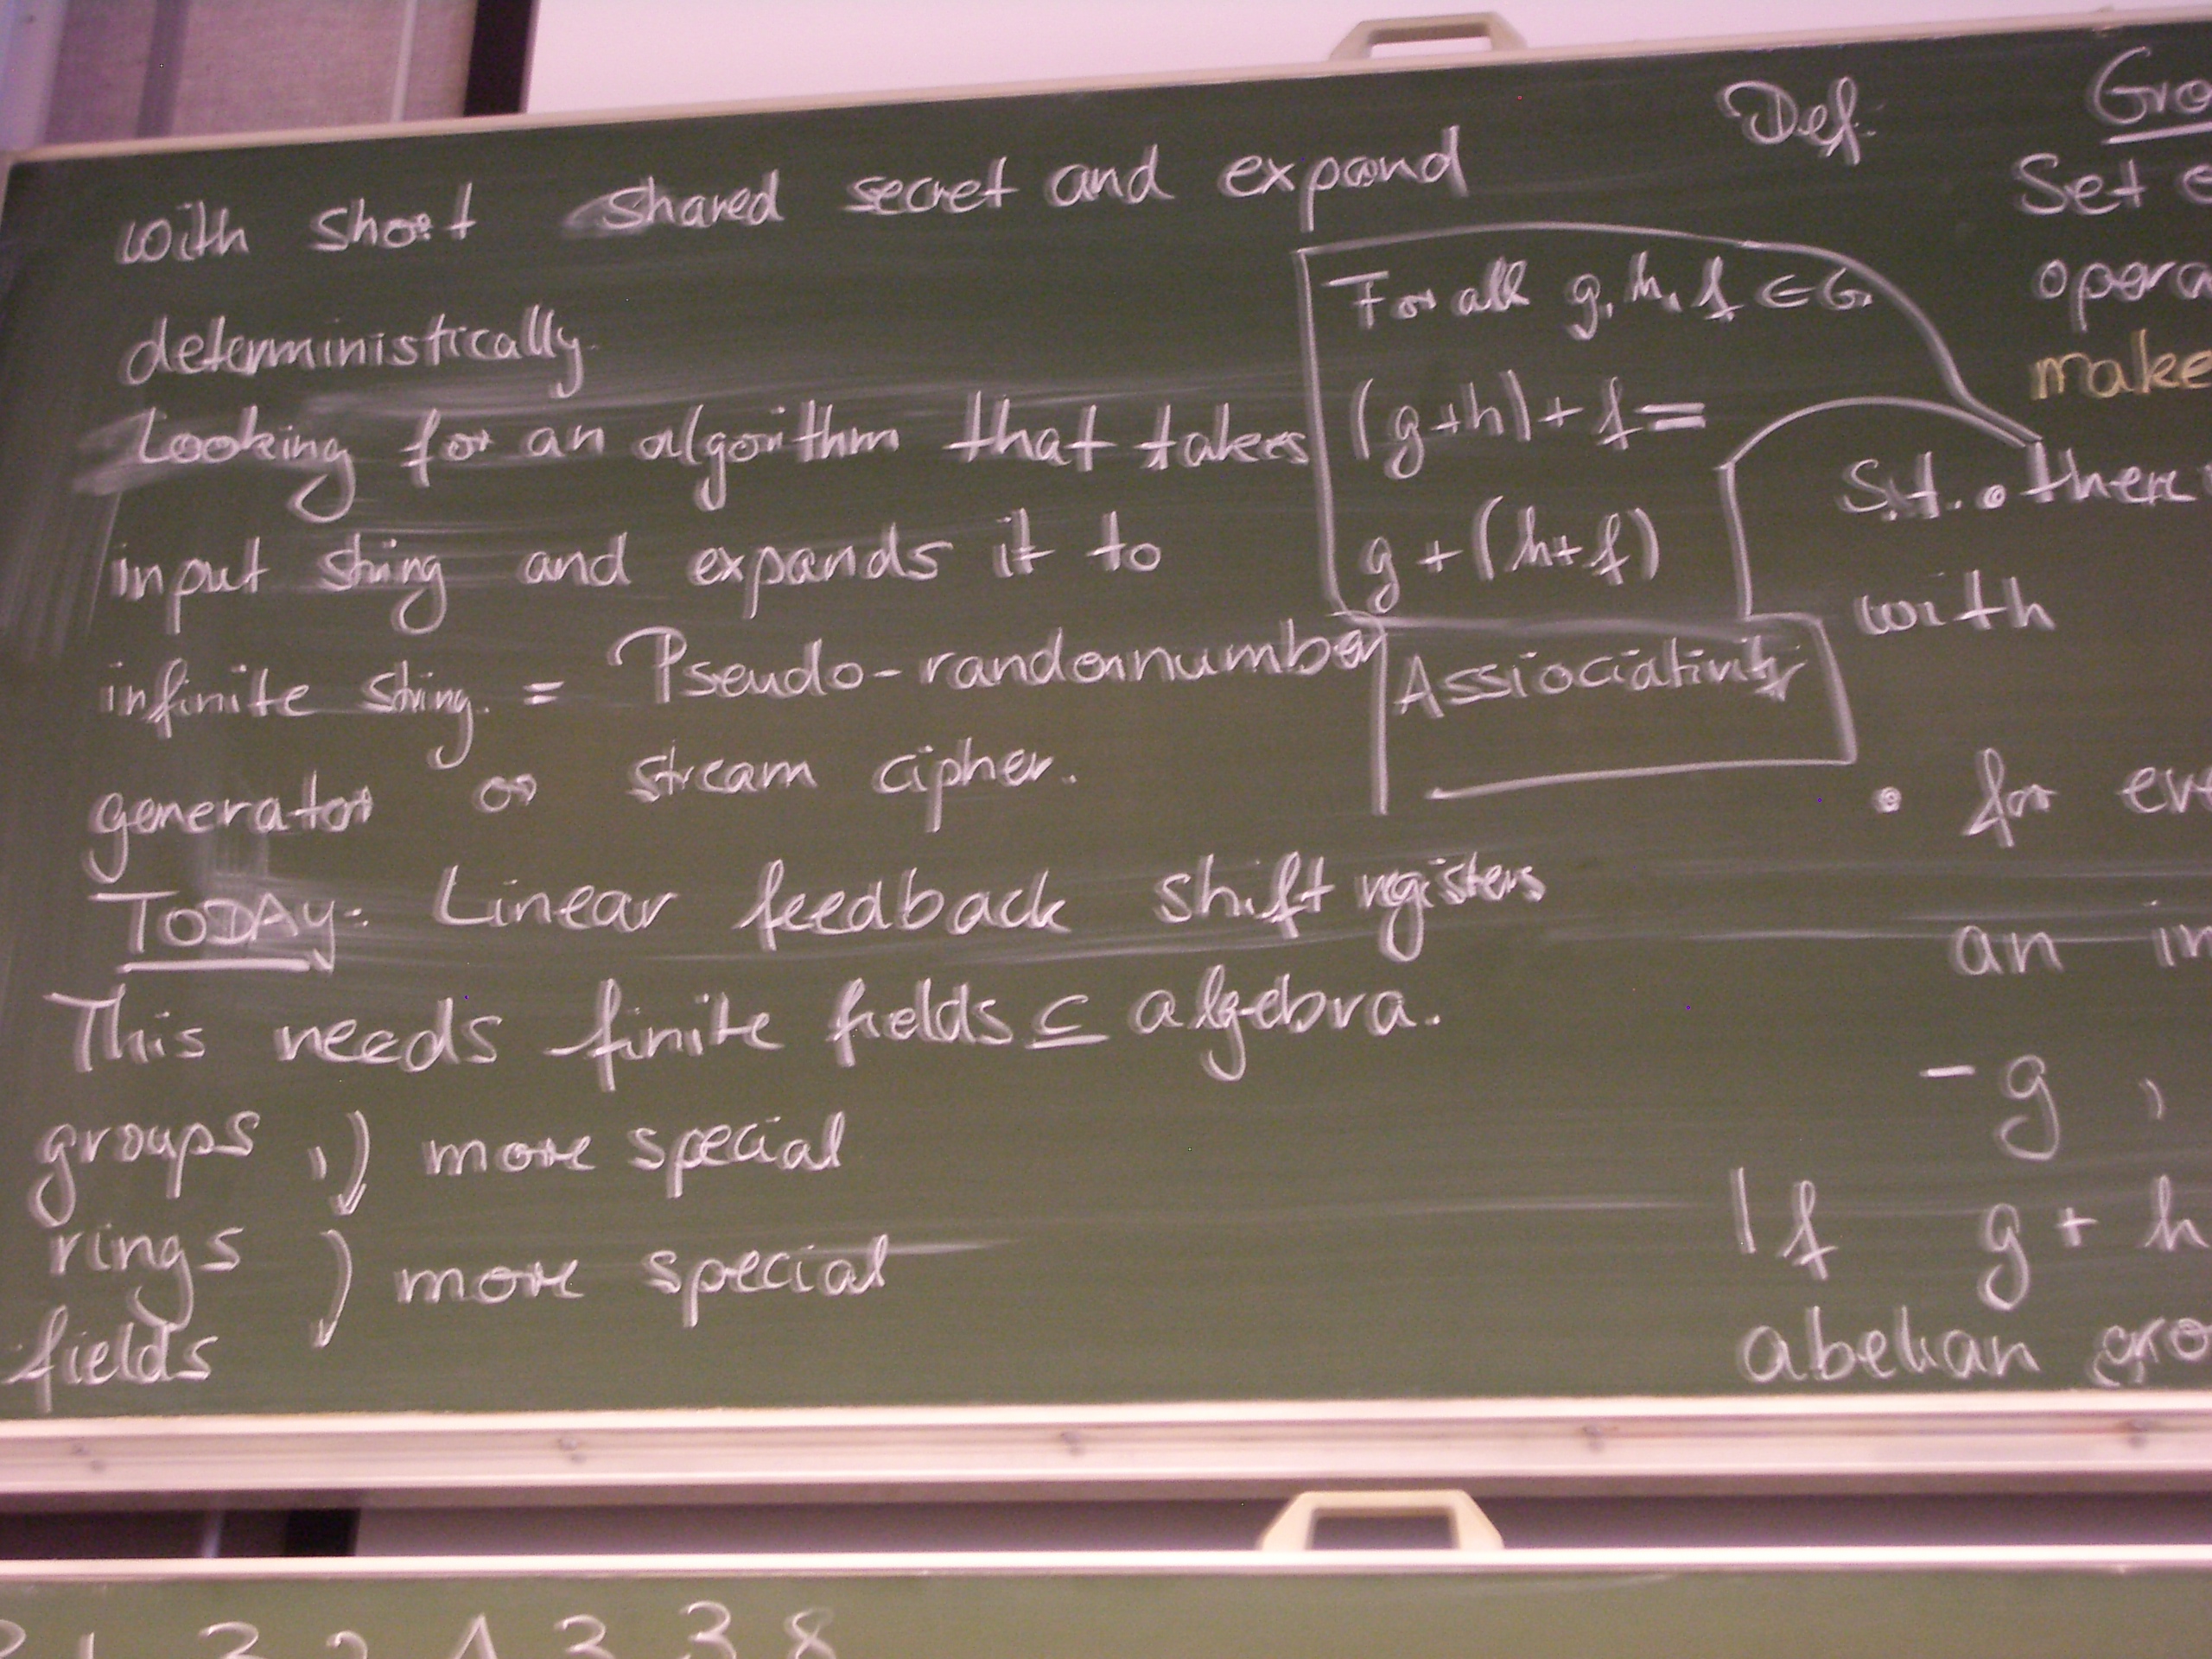 with short shared secret and expand
deterministically.
Looking for an algorithm that takes
input string and expands it to
infinite string. = Pseudo-randomnumber
generator or stream cipher.
TODAY: Linear feedback shift registers
This needs finite fields ⊆ algebra.
groups , ) more special
rings ) more special
fields
For all g, h, f ∈ G
(g+h)+f=
g+(h+f)
Assiociativity
Def: Gro
Set
opera
make
s.t. • there
with
• for eve
an in
-g ,
If g + h
abelian gro